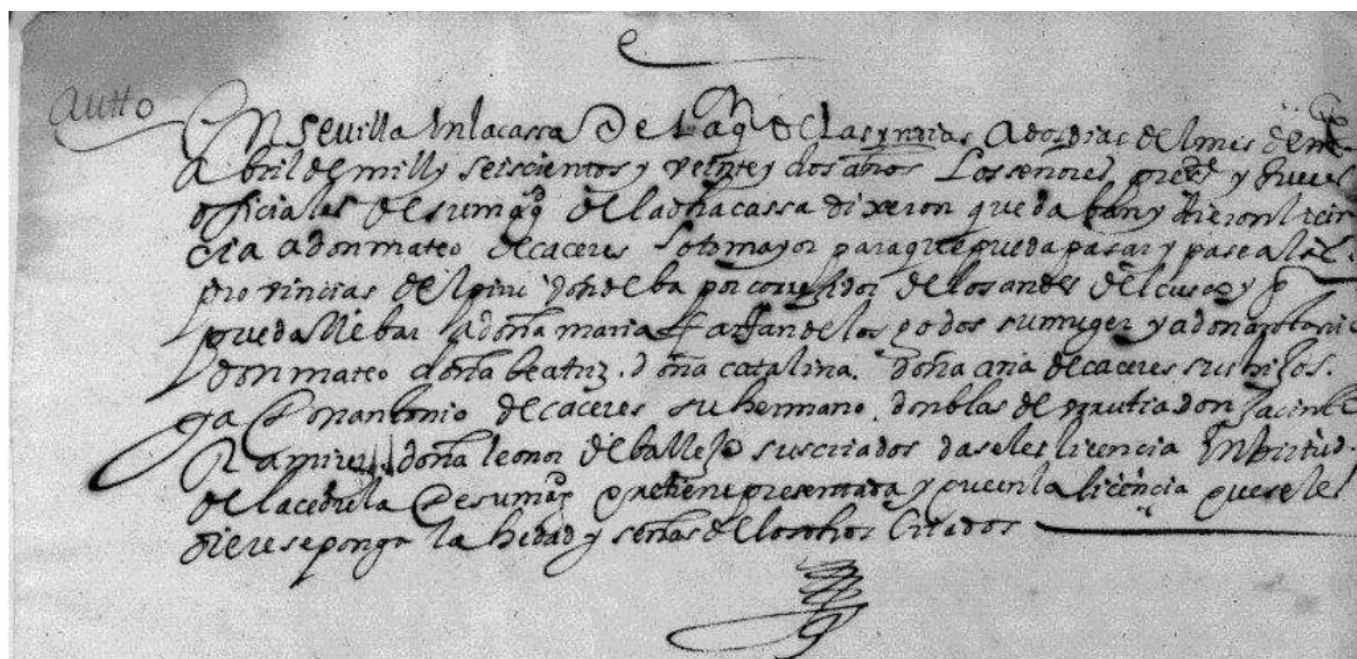 Autto
En sevilla En la cassa De la Con.on de las yndias A dos dias del mes de
Abril de mill y seiscientos y veinte y dos años Los señores pres.te y Jueces
officiales de su mag.d de la dha cassa dixeron que daban y dieron licen
cia a don mateo de caceres sotomayor para que pueda pasar y pase a las
provincias del piru donde ba por corregidor de los andes del cusco y q
pueda llebar a doña maria farfan de los godos su muger y a don antonio
don mateo doña beatriz. doña catalina. doña ana de caceres sus hijos.
ya Don antonio de caceres su hermano. don blas de urrutia don Jacinto
Ramires doña leonor de ballejo sus criados daseles licencia En birtud.
de la cedula de su mag.d q retiene presentada y que en la licencia que se le
diere se ponga la hedad y señas de los dhos criados